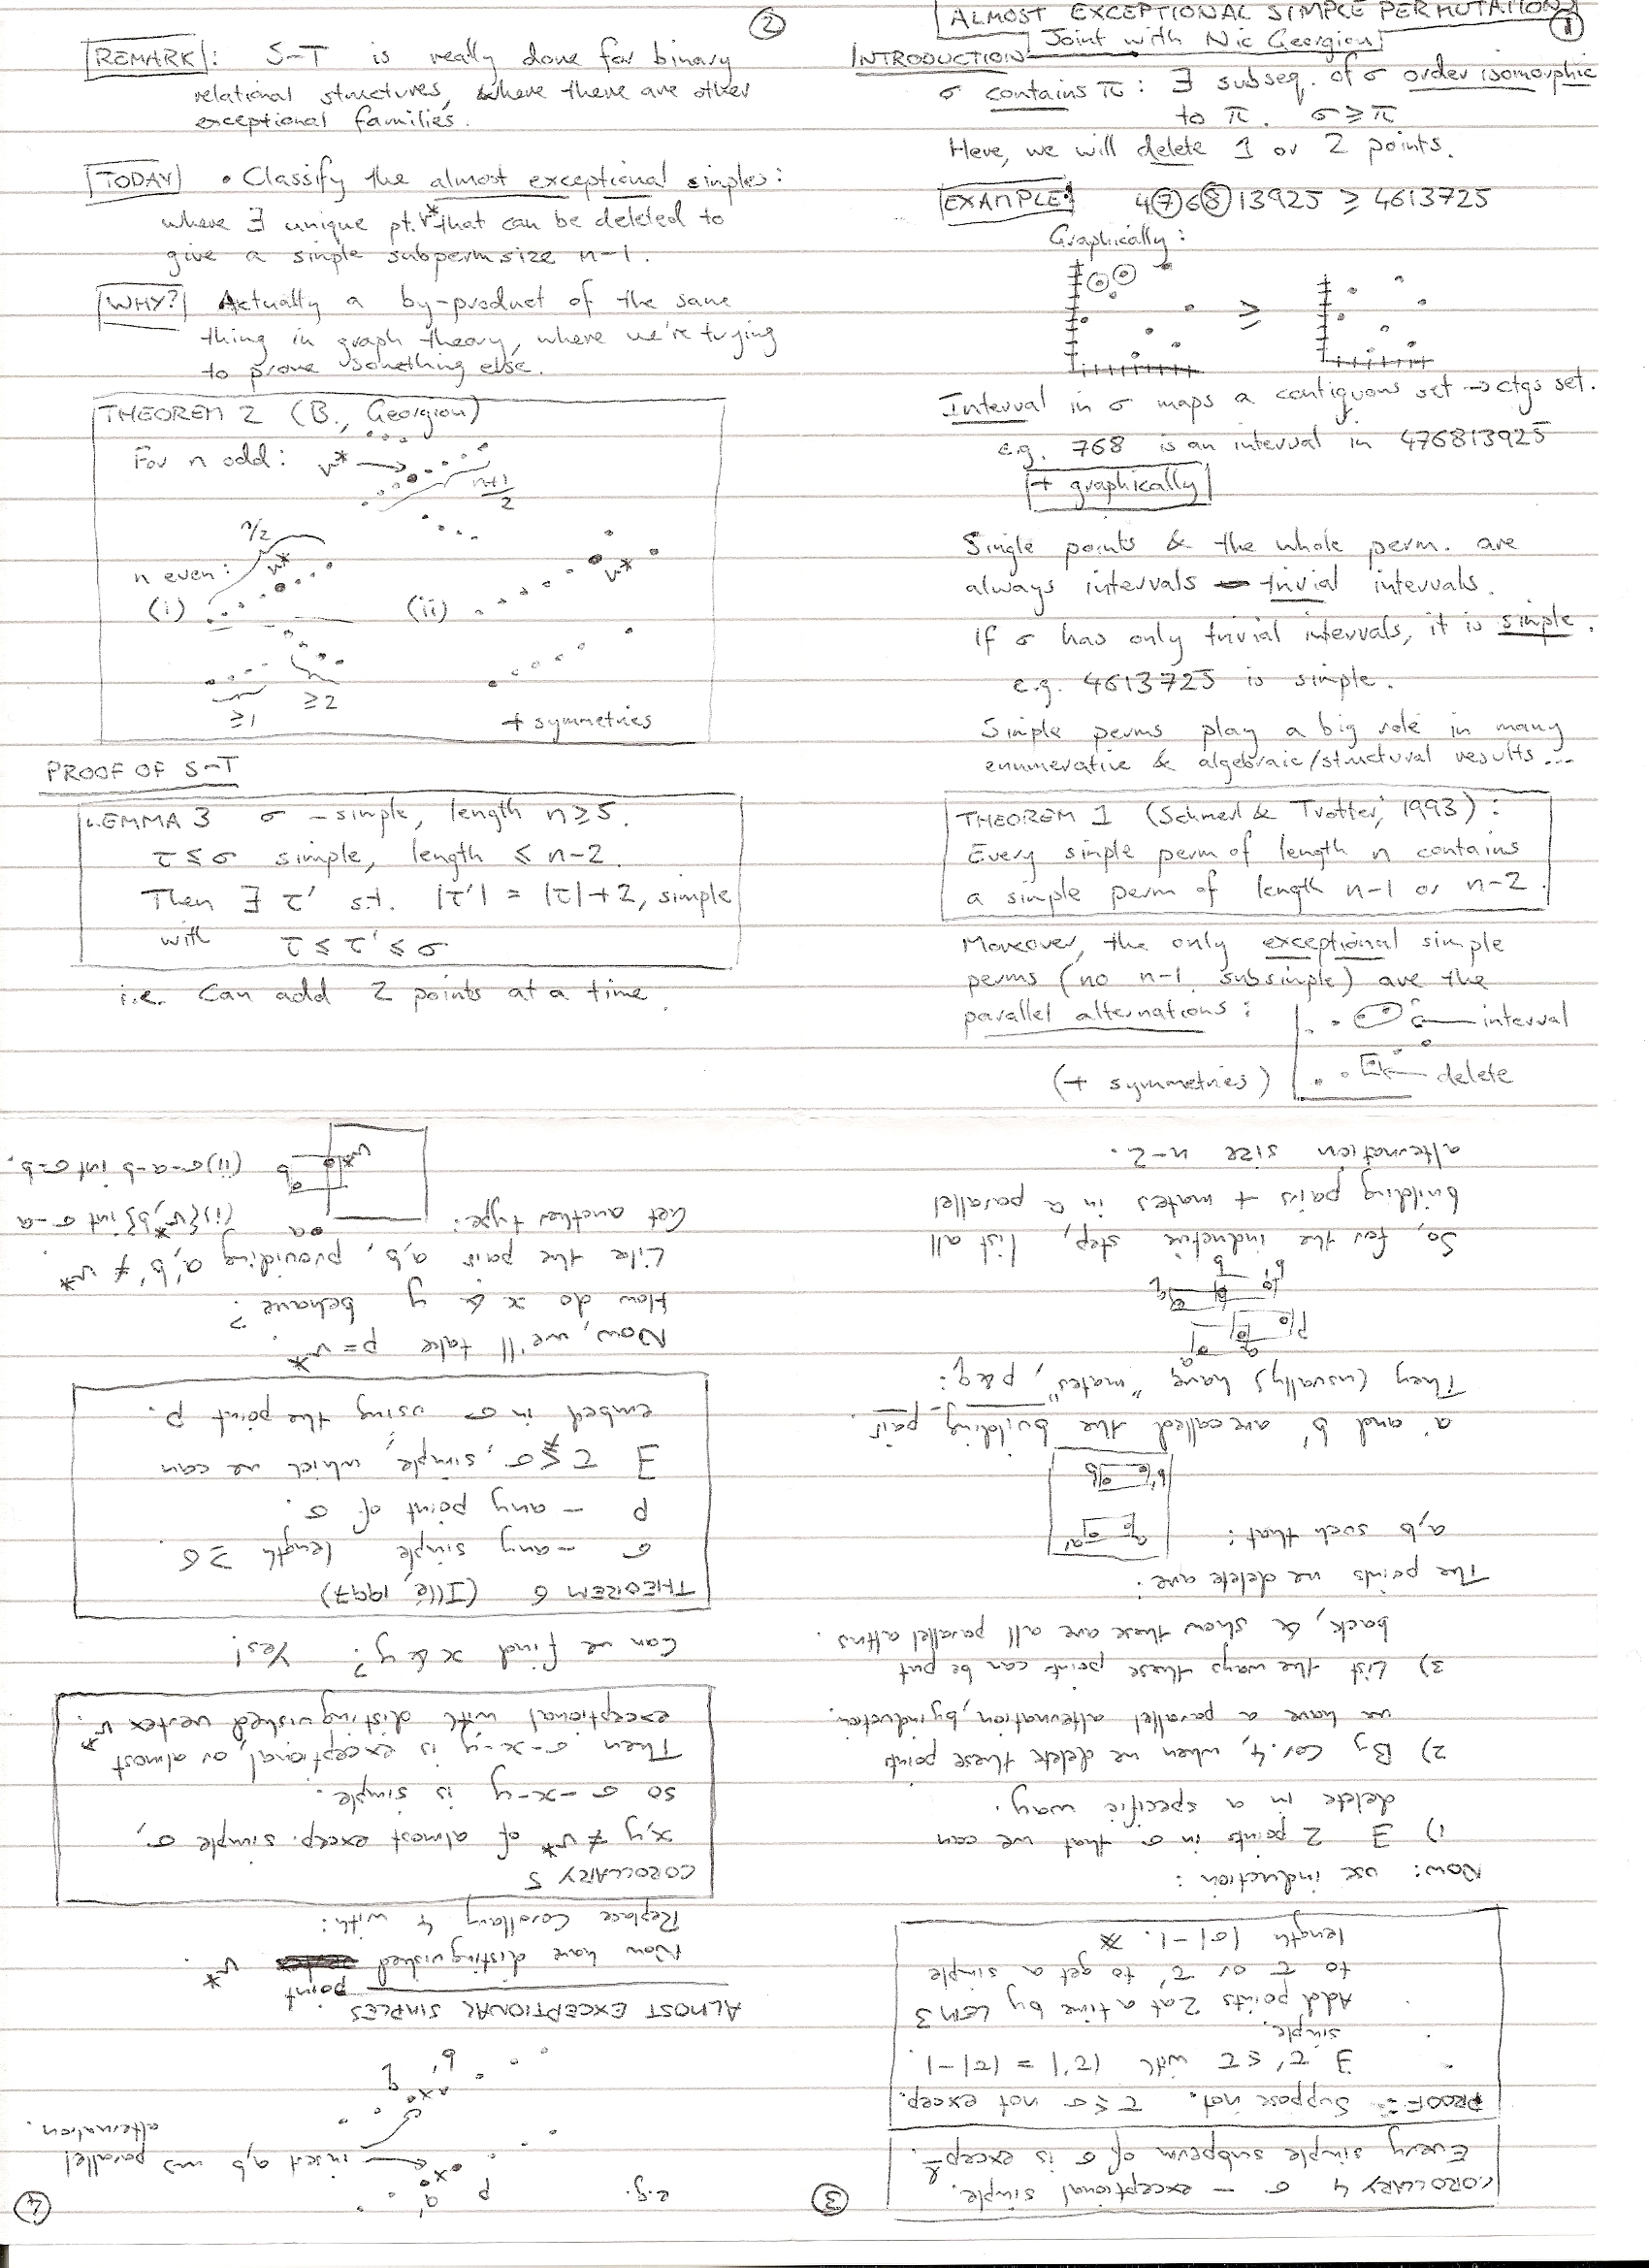 ①
ALMOST EXCEPTIONAL SIMPLE PERMUTATIONS
Joint with Nic Georgiou
INTRODUCTION
σ contains π: ∃ subseq. of σ order isomorphic
to π. σ ≥ π
Here, we will delete 1 or 2 points.
EXAMPLE: 476813925 ≥ 4613725
Graphically:
≥
Interval in σ maps a contiguous set → ctgs set.
e.g. 768 is an interval in 476813925
+ graphically
Single points & the whole perm. are
always intervals - trivial intervals.
If σ has only trivial intervals, it is simple.
e.g. 4613725 is simple.
Simple perms play a big role in many
enumerative & algebraic/structural results...
THEOREM 1 (Schmerl & Trotter, 1993):
Every simple perm of length n contains
a simple perm of length n-1 or n-2.
Moreover, the only exceptional simple
perms (no n-1 subsimple) are the
parallel alternations:
interval
(+ symmetries)
delete
②
REMARK: S-T is really done for binary
relational structures, where there are other
exceptional families.
TODAY • Classify the almost exceptional simples:
where ∃ unique pt. v* that can be deleted to
give a simple subperm size n-1.
WHY? Actually a by-product of the same
thing in graph theory, where we're trying
to prove something else.
THEOREM 2 (B., Georgiou)
For n odd: v*
n+1/2
n/2
n even: v*
(i) (ii) v*
≥1 ≥2
+ symmetries
PROOF OF S-T
LEMMA 3 σ - simple, length n ≥ 5.
τ ≤ σ simple, length ≤ n-2.
Then ∃ τ' s.t. |τ'| = |τ|+2, simple
with τ ≤ τ' ≤ σ
i.e. Can add 2 points at a time.
③
COROLLARY 4 σ - exceptional simple.
Every simple subperm of σ is excepl.
PROOF: Suppose not. τ ≤ σ not excep.
∃ τ' ≤ τ with |τ'| = |τ|-1.
simple.
Add points 2 at a time by LEM 3
to τ or τ', to get a simple
length |σ|-1. ※
Now: use induction:
1) ∃ 2 points in σ that we can
delete in a specific way.
2) By Cor. 4, when we delete these points
we have a parallel alternation, by induction.
3) List the ways these points can be put
back, & show these are all parallel altns.
The points we delete are:
a,b such that:
a' and b' are called the building pair.
They (usually) have "mates", p & q:
So, for the inductive step, list all
building pairs + mates in a parallel
alternation size n-2.
④
e.g. p a'
insert a,b ⇒ parallel
alternation.
b' q
ALMOST EXCEPTIONAL SIMPLES
Now have distinguished point v*.
Replace Corollary 4 with:
COROLLARY 5
x,y ≠ v* of almost excep. simple σ,
so σ-x-y is simple.
Then σ-x-y is exceptional, or almost
exceptional with distinguished vertex v*.
Can we find x & y? Yes!
THEOREM 6 (Ille, 1997)
σ - any simple length ≥ 6
p - any point of σ.
∃ τ ≤ σ, simple, which we can
embed in σ using the point p.
Now, we'll take p = v*.
How do x & y behave?
Like the pair a,b, providing a',b' ≠ v*.
Get another type: a (i) {v*,b} int σ-a
b (ii) σ-a-b int σ-b.
v*